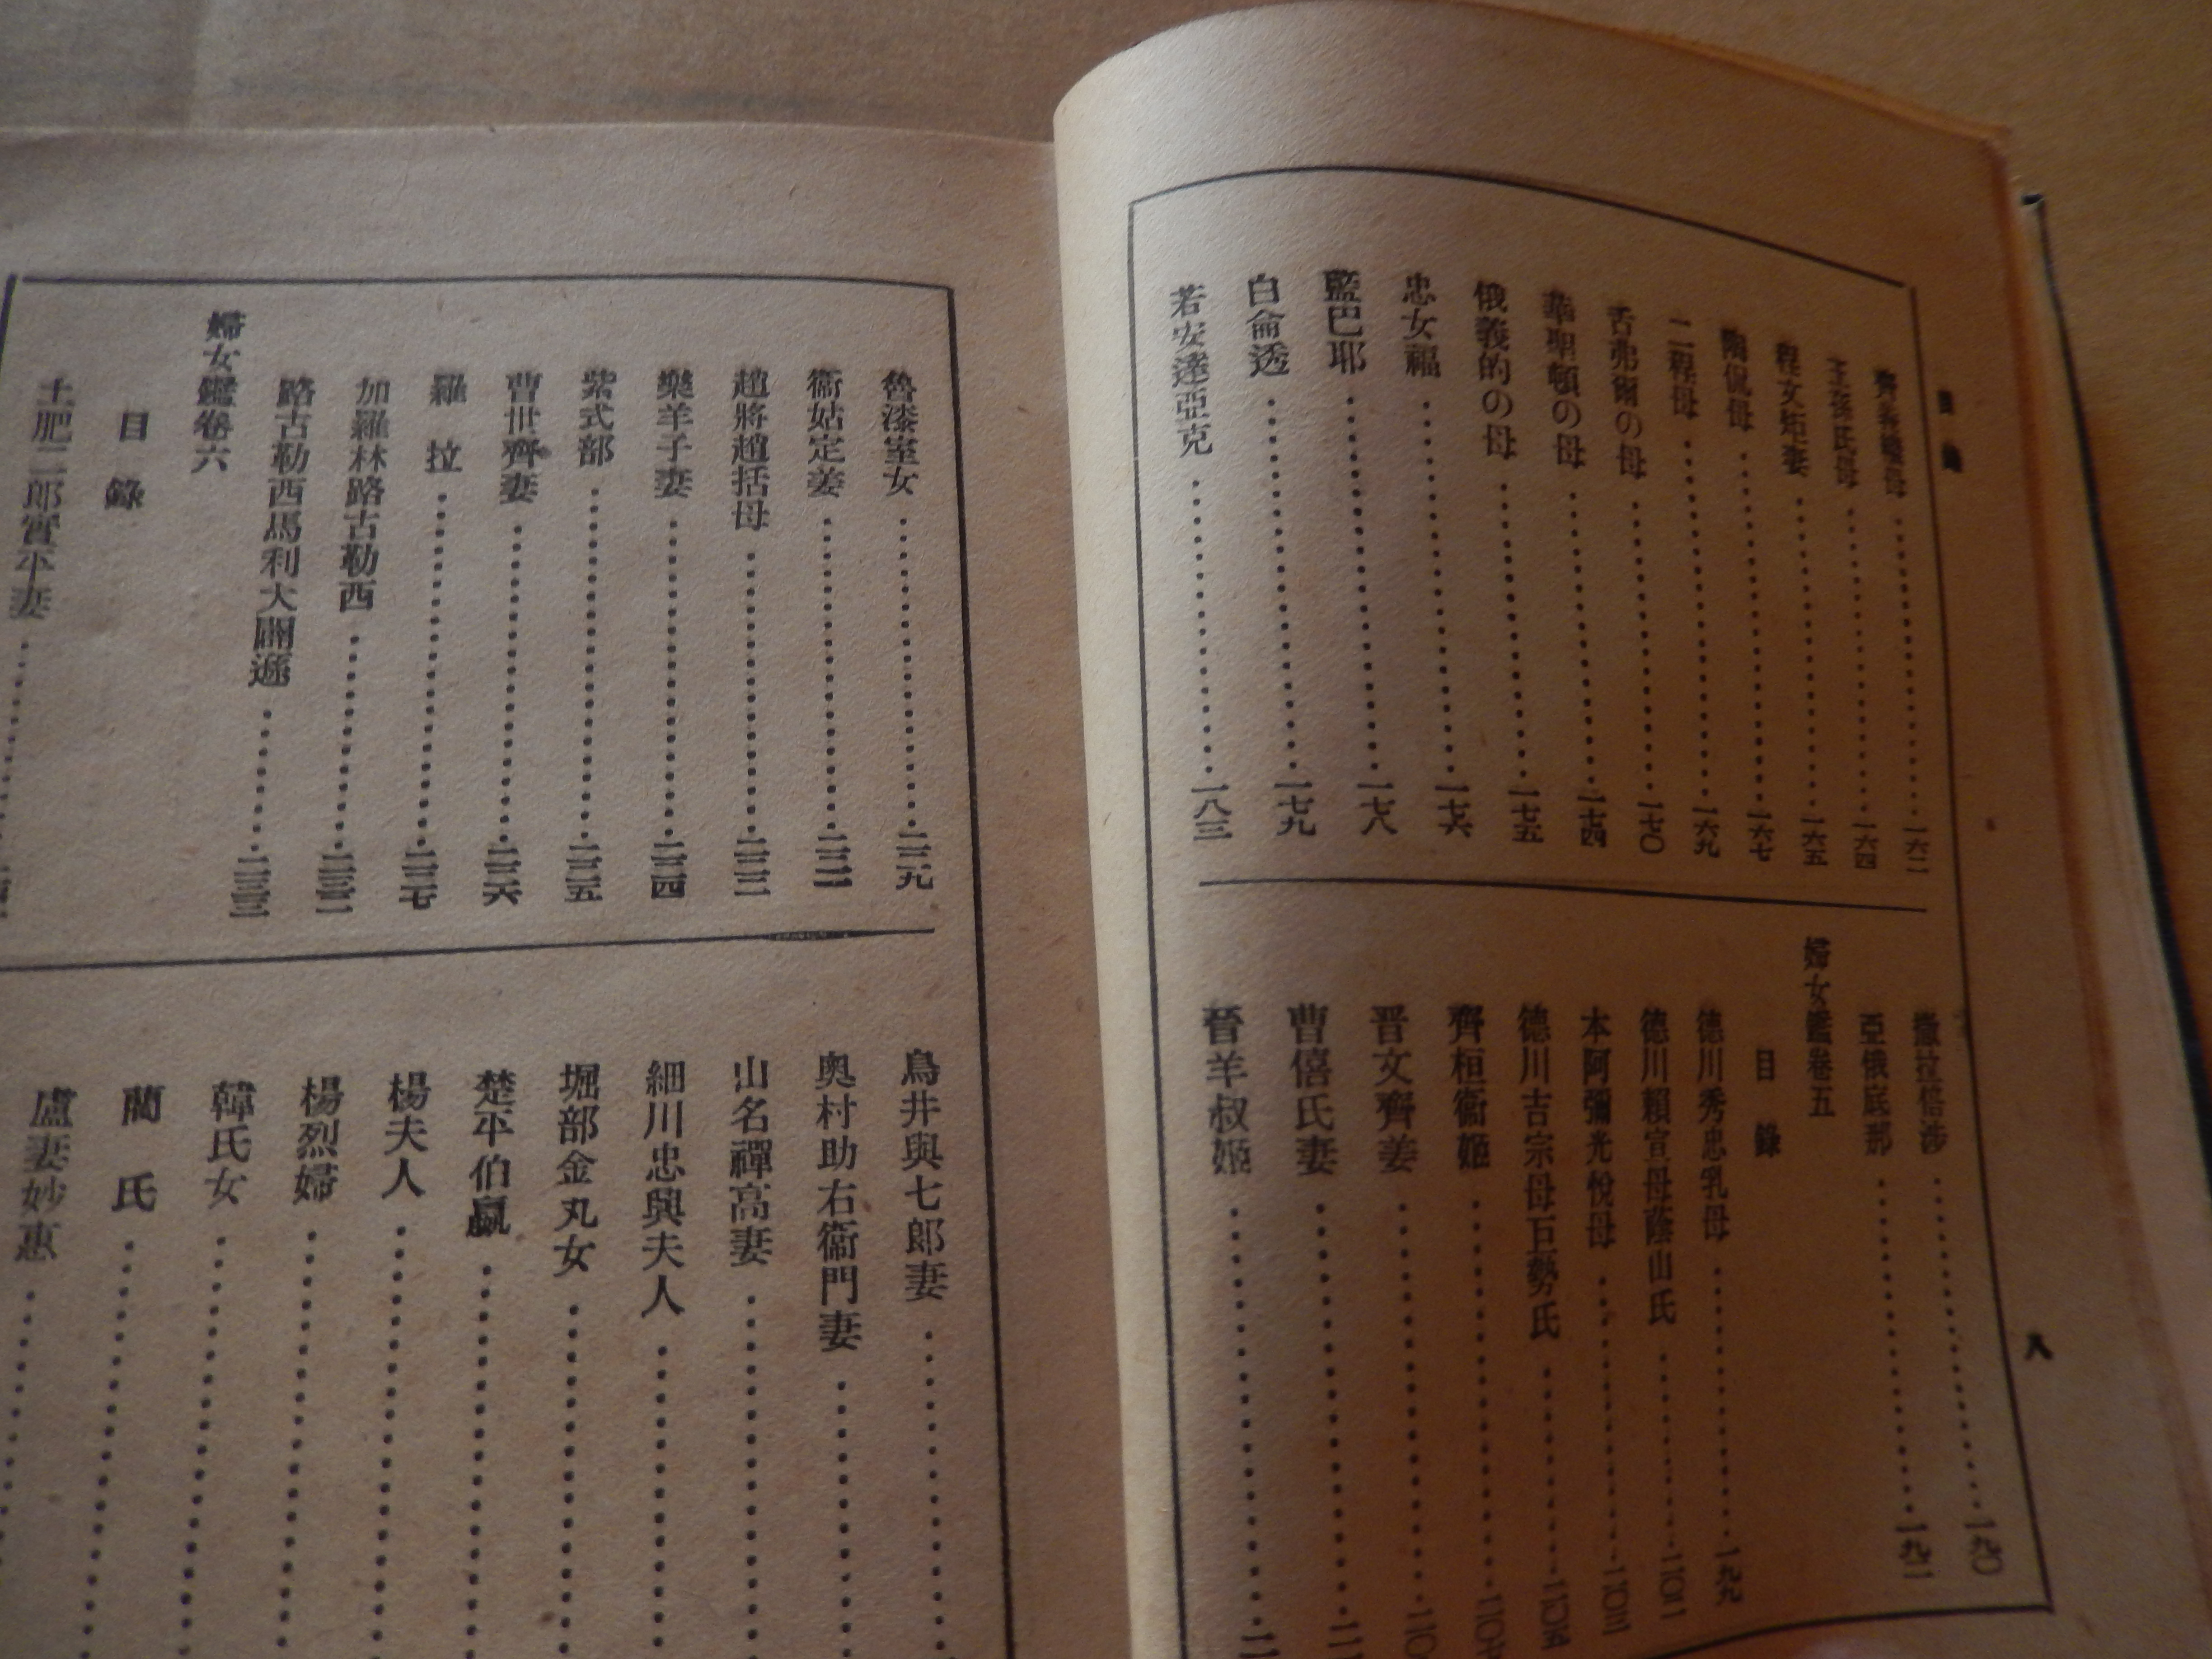 目錄
齊義繼母……一六二
王孫氏母……一六四
程文矩妻……一六五
陶侃母……一六七
二程母……一六九
舌弗爾の母……一七〇
華聖頓の母……一七四
俄義的の母……一七五
忠女福……一七六
藍巴耶……一七八
白侖透……一七九
若安達亞克……一八三
撒拉倍涉……一九〇
亞俄底那……一九二
婦女鑑卷五
目錄
德川秀忠乳母……一九九
德川賴宣母蔭山氏……二〇二
本阿彌光悅母……二〇三
德川吉宗母巨勢氏……二〇五
齊桓衞姬……二〇七
晋文齊姜……二〇
曹僖氏妻……二一
晉羊叔姬……二一
八
魯漆室女……二一九
衞姑定姜……二二一
趙將趙括母……二二三
樂羊子妻……二二四
紫式部……二二五
曹世齊妻……二二六
羅拉……二二七
加羅林路古勒西……二三二
路古勒西馬利大闢遜……二三三
婦女鑑卷六
目錄
土肥二郎實平妻……
鳥井與七郎妻……
奥村助右衞門妻……
山名禪高妻……
細川忠興夫人……
堀部金丸女……
楚平伯嬴……
楊夫人……
楊烈婦……
韓氏女……
蘭氏……
盧妻妙惠……